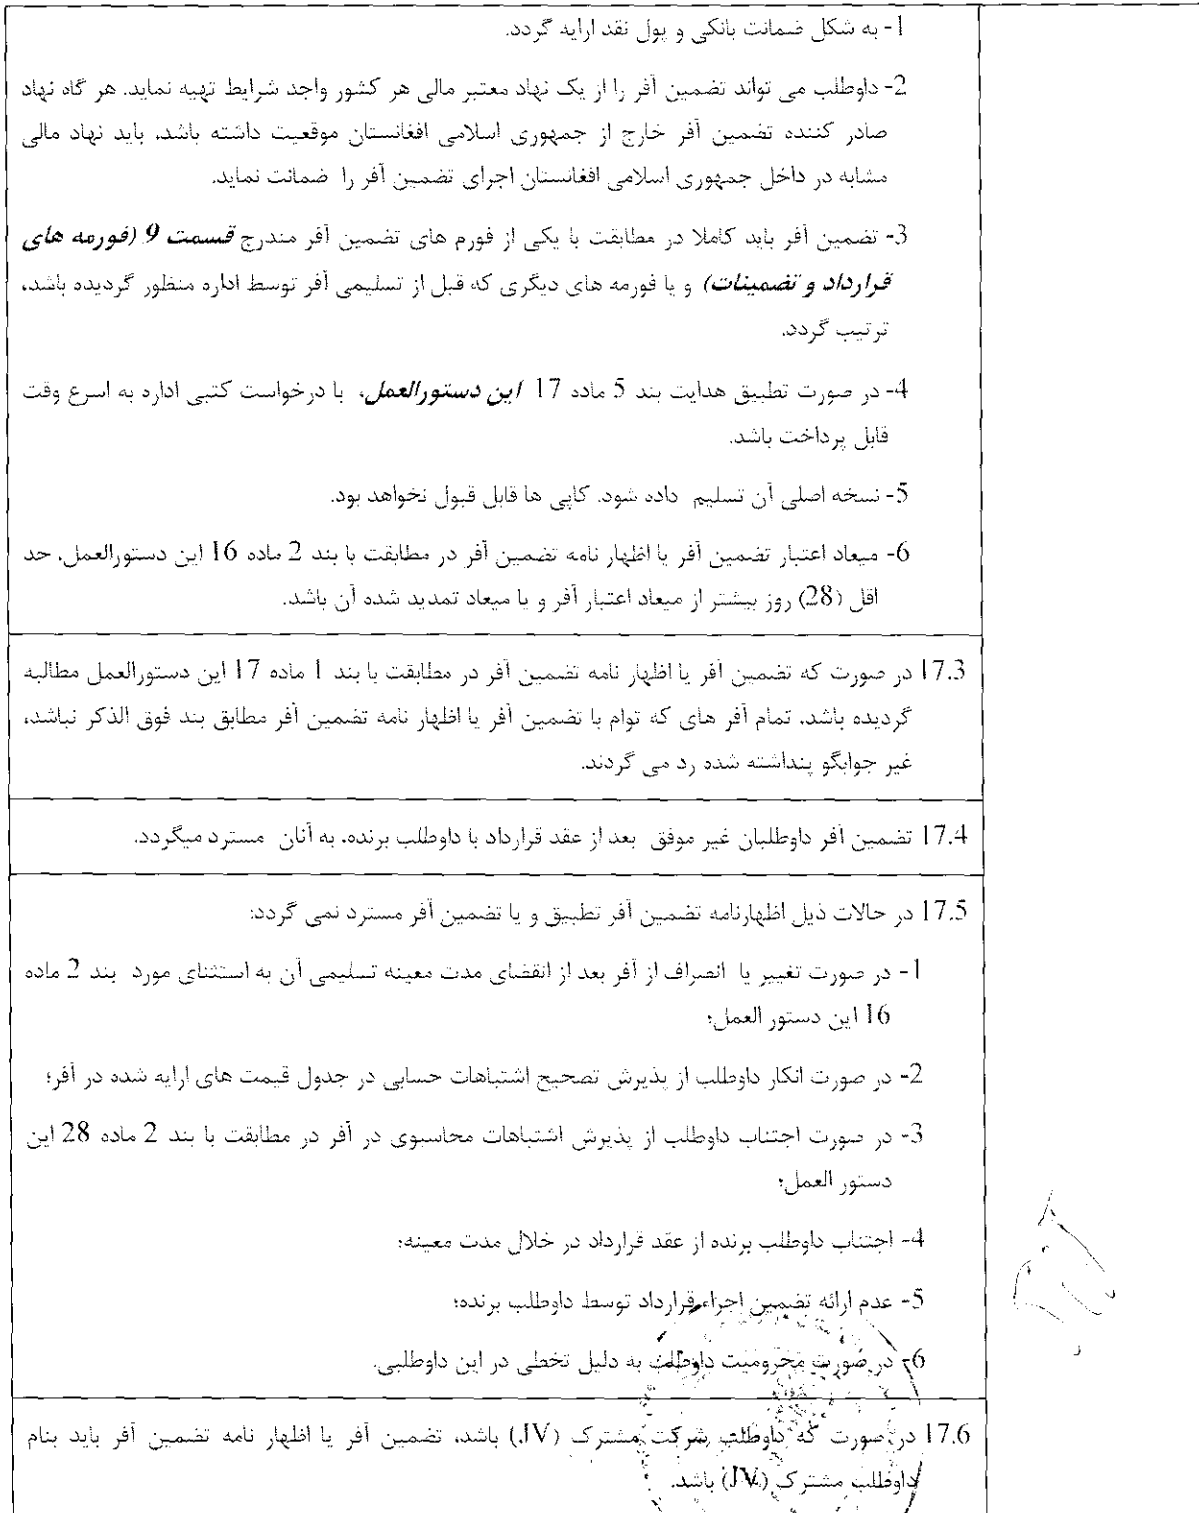 1- به شکل ضمانت بانکی و پول نقد ارایه گردد.
2- داوطلب می تواند تضمین آفر را از یک نهاد معتبر مالی هر کشور واجد شرایط تهیه نماید. هر گاه نهاد
صادر کننده تضمین آفر خارج از جمهوری اسلامی افغانستان موقعیت داشته باشد، باید نهاد مالی
مشابه در داخل جمهوری اسلامی افغانستان اجرای تضمین آفر را ضمانت نماید.
3- تضمین آفر باید کاملا در مطابقت با یکی از فورم های تضمین آفر مندرج قسمت 9 (فورمه های
قرارداد و تضمینات) و یا فورمه های دیگری که قبل از تسلیمی آفر توسط اداره منظور گردیده باشد،
ترتیب گردد.
4- در صورت تطبیق هدایت بند 5 ماده 17 این دستورالعمل، با درخواست کتبی اداره به اسرع وقت
قابل پرداخت باشد.
5- نسخه اصلی آن تسلیم داده شود. کاپی ها قابل قبول نخواهد بود.
6- میعاد اعتبار تضمین آفر یا اظهار نامه تضمین آفر در مطابقت با بند 2 ماده 16 این دستورالعمل، حد
اقل (28) روز بیشتر از میعاد اعتبار آفر و یا میعاد تمدید شده آن باشد.
17.3 در صورت که تضمین آفر یا اظهار نامه تضمین آفر در مطابقت با بند 1 ماده 17 این دستورالعمل مطالبه
گردیده باشد. تمام آفر های که توام با تضمین آفر یا اظهار نامه تضمین آفر مطابق بند فوق الذکر نباشد،
غیر جوابگو پنداشته شده رد می گردند.
17.4 تضمین آفر داوطلبان غیر موفق بعد از عقد قرارداد با داوطلب برنده، به آنان مسترد میگردد.
17.5 در حالات ذیل اظهارنامه تضمین آفر تطبیق و یا تضمین آفر مسترد نمی گردد:
1- در صورت تغییر یا انصراف از آفر بعد از انقضای مدت معینه تسلیمی آن به استثنای مورد بند 2 ماده
16 این دستور العمل؛
2- در صورت انکار داوطلب از پذیرش تصحیح اشتباهات حسابی در جدول قیمت های ارایه شده در آفر؛
3- در صورت اجتناب داوطلب از پذیرش اشتباهات محاسبوی در آفر در مطابقت با بند 2 ماده 28 این
دستور العمل؛
4- اجتناب داوطلب برنده از عقد قرارداد در خلال مدت معینه؛
5- عدم ارائه تضمین اجراء قرارداد توسط داوطلب برنده؛
6- در صورت محرومیت داوطلب به دلیل تخطی در این داوطلبی.
17.6 در صورت که داوطلب شرکت مشترک (JV) باشد، تضمین آفر یا اظهار نامه تضمین آفر باید بنام
داوطلب مشترک (JV) باشد.